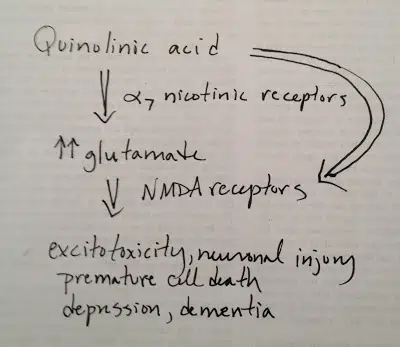 Quinolinic acid
α7 nicotinic receptors
↑↑ glutamate
NMDA receptors
excitotoxicity, neuronal injury
premature cell death
depression, dementia